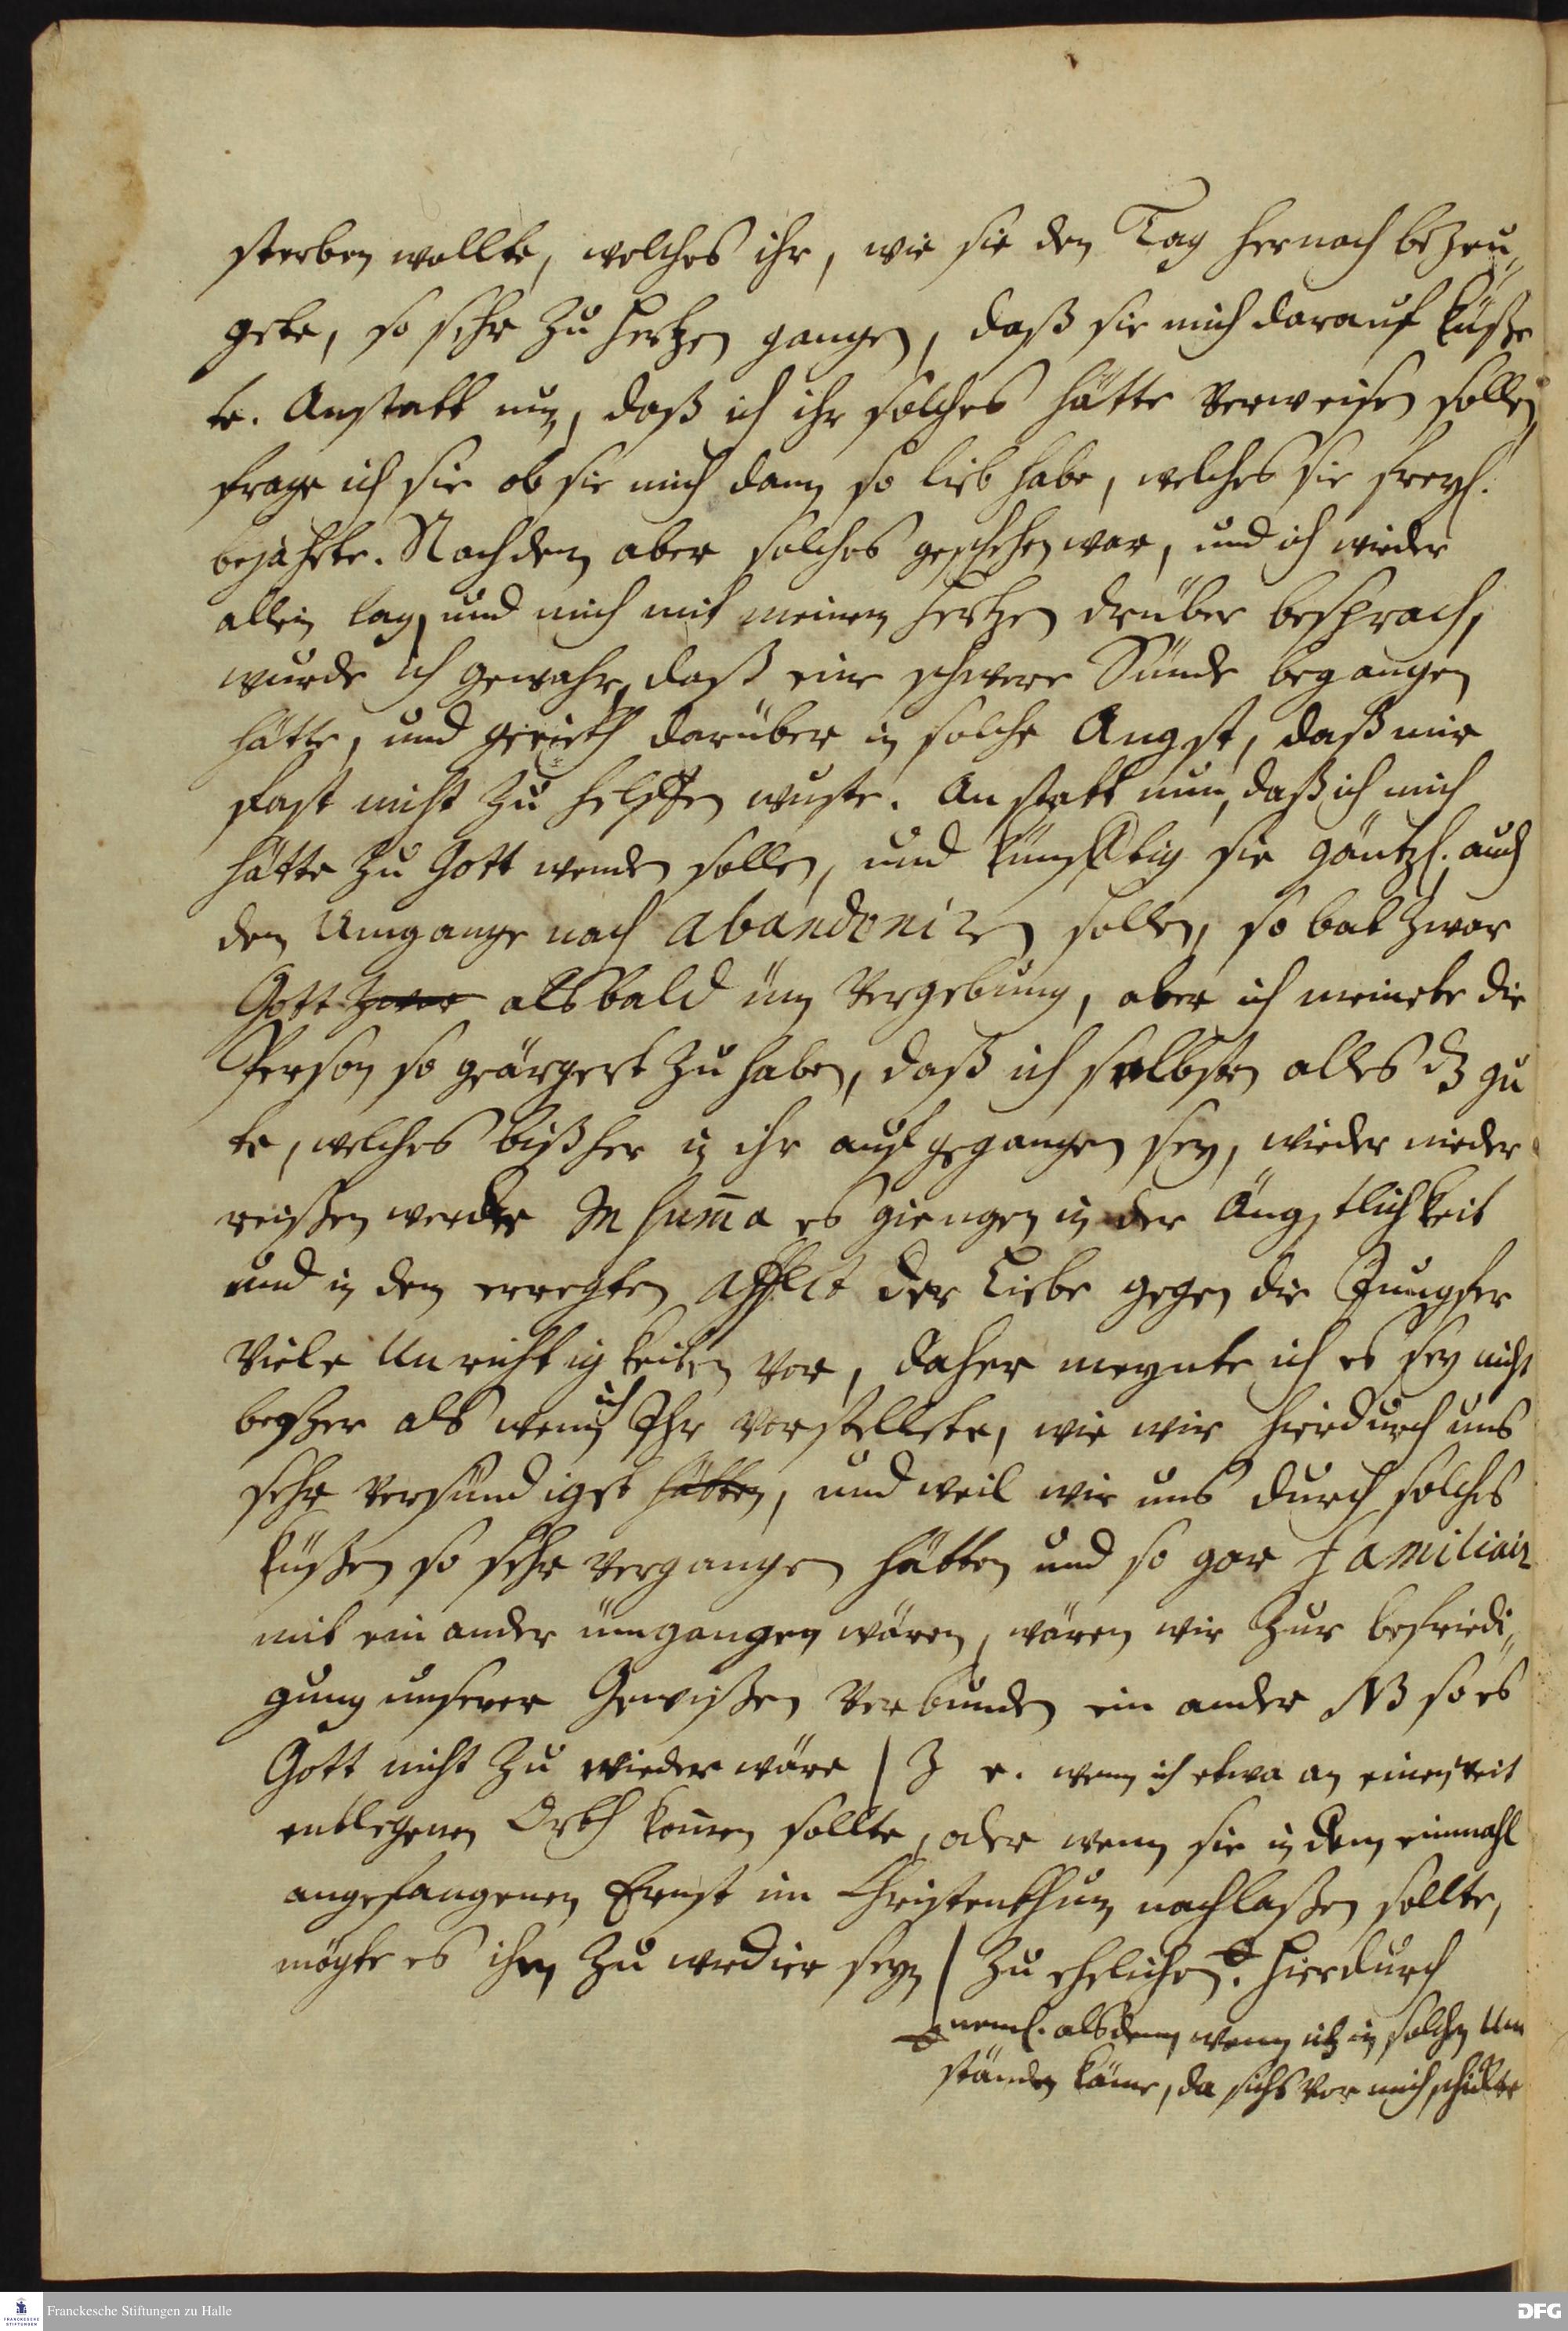 sterben wollte, welches ihr, wie sie den Tag hernach bezeu„
gete, so sehr zu Hertzen gangen, daß sie mich darauf küße
te. Anstatt nun, daß ich ihr solches hätte verweisen sollen,
frage ich sie ob sie mich dann so lieb habe, welches sie freyl.
bejahete. Nachdem aber solches geschehen war, und ich wieder
allein lag, und mich mit meinem Hertzen drüber besprach,
wurde ich gewahr, daß eine schwere Sünde begangen
hätte, und gerieth darüber in solche Angst, daß mir
fast nicht zu helffen wuste. Anstatt nun, daß ich mich
hätte zu Gott wenden sollen, und künfftig sie gäntzl. auch
dem Umgange nach abandoniren sollen, so bat zwar
Gott zwar alsbald üm Vergebung, aber ich meinete die
Person so geärgert zu haben, daß ich selbsten alles dz gu
te, welches bißher in ihr aufgegangen sey, wieder nieder
reißen werde. In summa es giengen in der Ängstlichkeit
und in dem erregten Affect der Liebe gegen die Jungfer
viele Unrichtigkeiten vor, daher meynte ich es sey nicht
beßer als wenn ich Ihr vorstellete, wie wir hierdurch uns
sehr versündiget hätten, und weil wir uns durch solches
küßen so sehr vergangen hätten und so gar familiair
mit ein ander ümgangen wären, wären wir zur befriedi„
gung unserer Gewißen verbunden ein ander NB so es
Gott nicht zu wieder wäre / Z e. wenn ich etwa an einen weit
entlegenen Orth kom̄en sollte, oder wenn sie in dem einmahl
angefangenen Ernst im Christenthum nachlaßen sollte,
mögte es ihm zu wedier seyn / zu ehelichen. Hierdurch
neml. alsdenn, wenn ich in solchen Um
ständen käme, da sichs vor mich schickte
Franckesche Stiftungen zu Halle
DFG